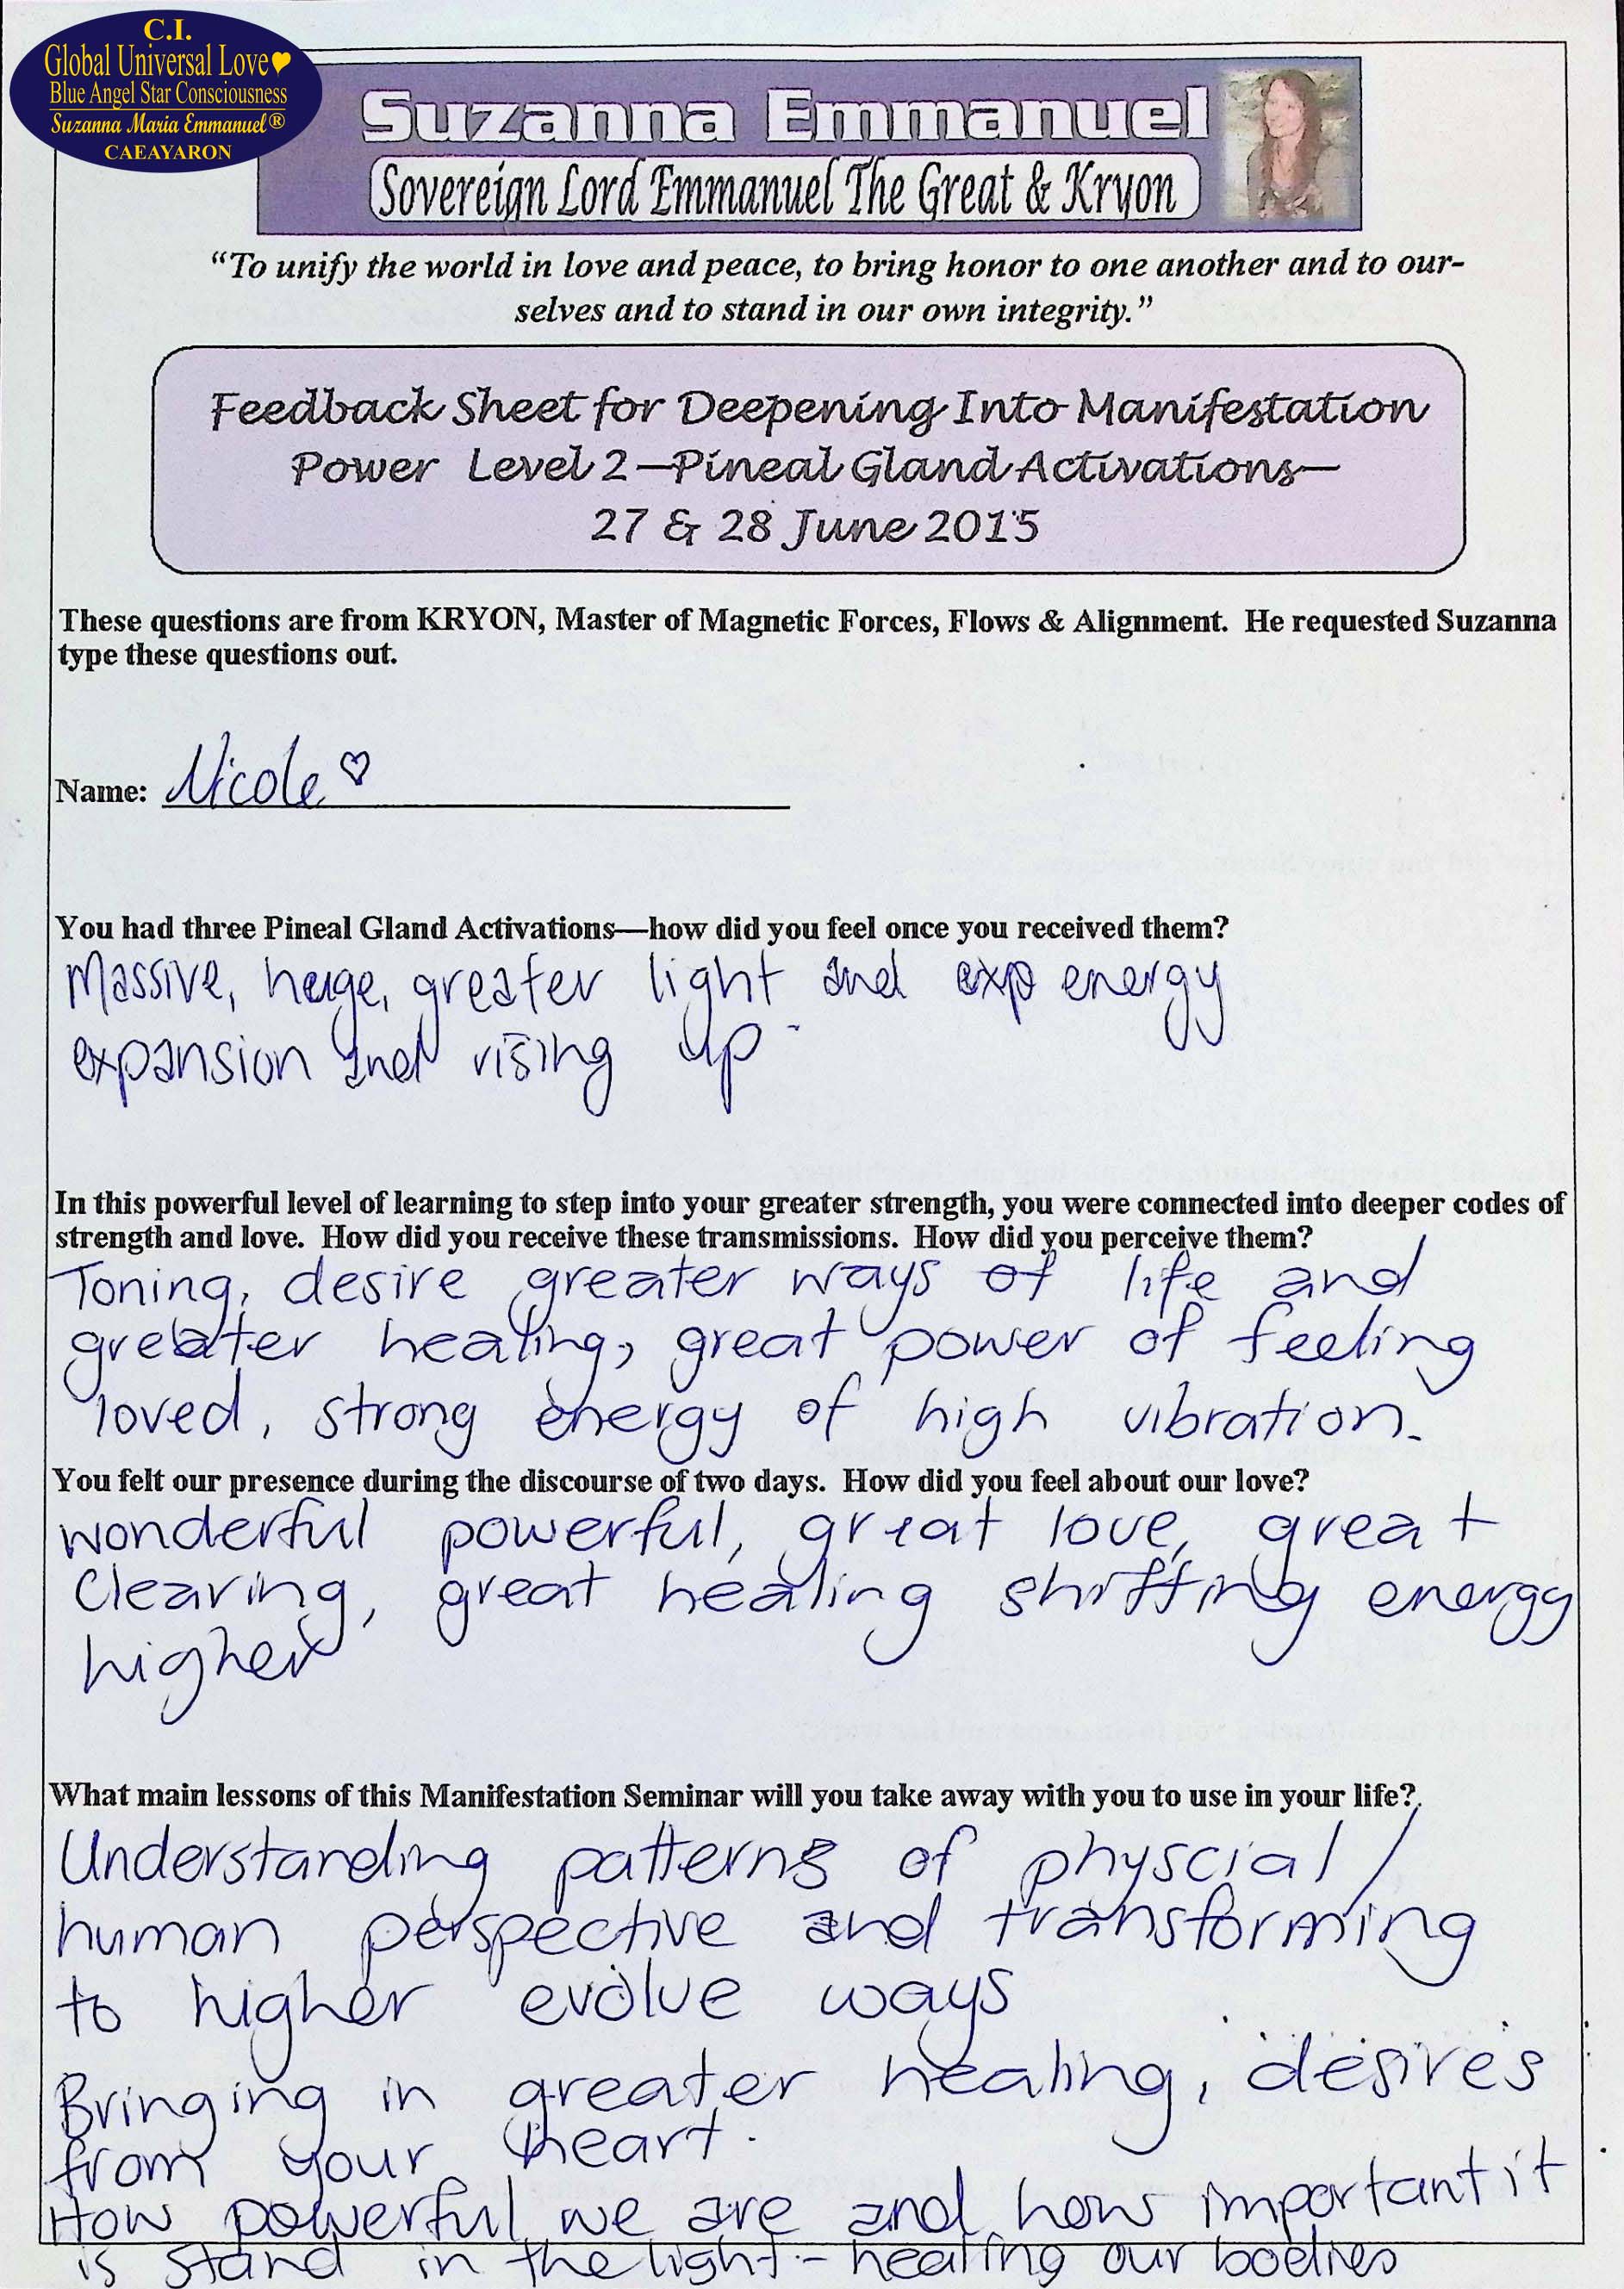 C.I.
Global Universal Love
Blue Angel Star Consciousness
Suzanna Maria Emmanuel®
CAEAYARON
Suzanna Emmanuel
Sovereign Lord Emmanuel The Great & Kryon
“To unify the world in love and peace, to bring honor to one another and to our-
selves and to stand in our own integrity.”
Feedback Sheet for Deepening Into Manifestation
Power Level 2—Pineal Gland Activations—
27 & 28 June 2015
These questions are from KRYON, Master of Magnetic Forces, Flows & Alignment. He requested Suzanna
type these questions out.
Name: Nicole ♡
You had three Pineal Gland Activations—how did you feel once you received them?
Massive, huge, greater light and exp energy
expansion and rising up
In this powerful level of learning to step into your greater strength, you were connected into deeper codes of
strength and love. How did you receive these transmissions. How did you perceive them?
Toning, desire greater ways of life and
greater healing, great power of feeling
loved, strong energy of high vibration.
You felt our presence during the discourse of two days. How did you feel about our love?
wonderful powerful, great love, great
Clearing, great healing shifting energy
higher
What main lessons of this Manifestation Seminar will you take away with you to use in your life?
Understanding patterns of physcial/
human perspective and transforming
to higher evolve ways
Bringing in greater healing, desires
from your heart.
How powerful we are and how important it
is stand in the light - healing our bodies